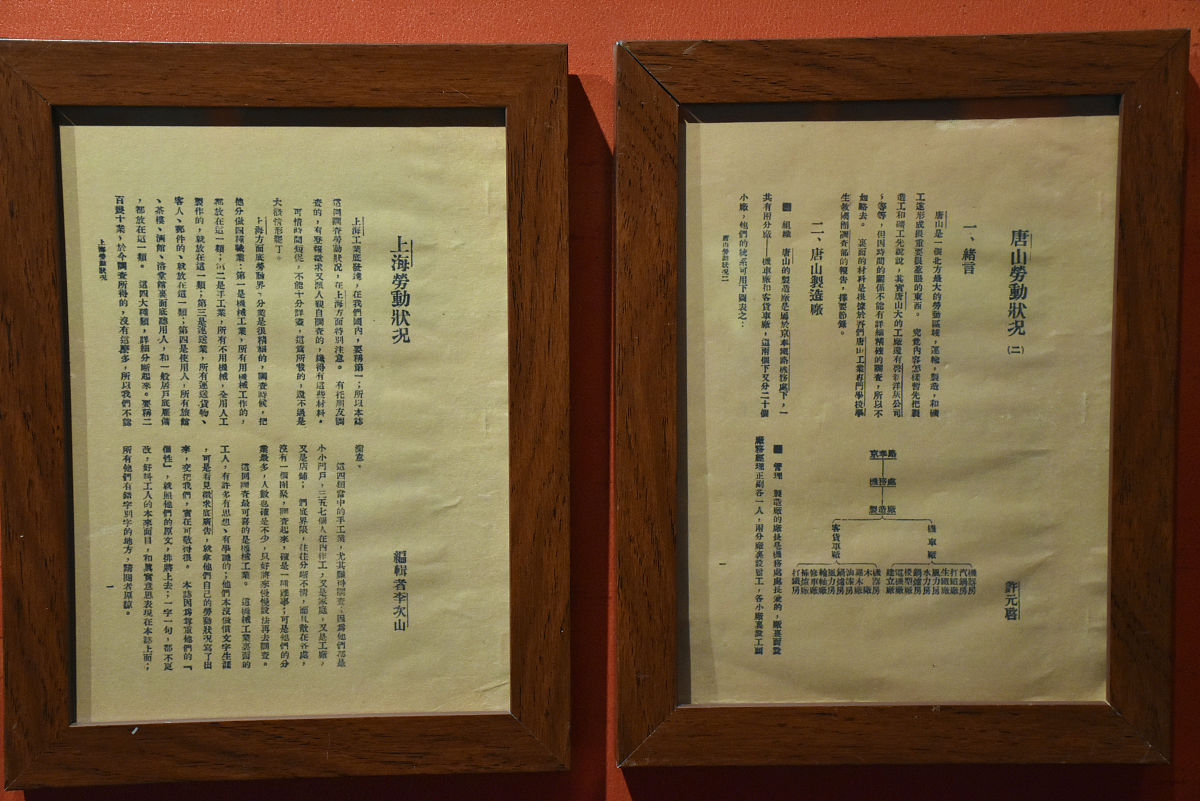 上海勞動狀況
編輯者李次山
上海工業底發達,在我們國內,要稱第一;所以本誌
這回調查勞動狀況,在上海方面特別注意。 有托朋友調
查的,有登報徵求又派人親自調查的,纔得有這些材料。
可惜時間短促,不能十分詳盡,這篇所載的,還不過是
大概情形罷了。
上海方面底勞動界,分業是很精細的,調查時候,把
他分做四種職業:第一是機械工業,所有用機械工作的,
都放在這一類;第二是手工業,所有不用機械,全用人工
製作的,就放在這一類;第三是運送業,所有運送貨物、
客人、郵件的、就放在這一類;第四是使用人,所有旅館
、茶樓、酒館、浴堂館裏面底聽用人,和一般居戶底雇傭
,都放在這一類。 這四大種類,詳細分晰起來。要稱二
百幾十業,於今調查所得的,沒有這麼多,所以我們不能
滿意。
這四類當中的手工業,尤其難得調查;因爲他們都是
小小門戶,三五七個人在內作工,又是家庭,又是工廠,
又是店鋪; 們底界限,往往分晰不清,而且散在各處,
沒有一個團聚,調查起來,確是一種難事;可是他們的分
業最多,人數也確是不少,只好將來慢慢設法再去調查。
這回調查最可喜的是機械工業。 這機械工業裏面的
工人,有許多有思想、有學識的;他們本沒做慣文字生涯
,可是看見徵求底廣告,就拿他們自己的勞動狀況寫了出
來,交把我們,實在可敬得很。 本誌因爲尊重他們的『
個性』,就照他們的原文,排將上去;一字一句,都不更
改,好叫工人的本來面目,和眞實意思表現在本誌上面;
所有他們有錯字別字的地方,請閱者原諒。
上海勞動狀況
一
唐山勞動狀況(二)
許元啓
一、緒言
唐山是一個北方最大的勞動區域,運輸,製造,和礦
工逐形成很重要很惹眼的東西。 究竟內容怎樣暫先把製
造工和礦工先說說,其實唐山大的工廠還有啓新洋灰公司
,等等,但因時間的關係不能有詳細精確的調查,所以不
如略去。 裏面的材料是根據於吾們唐山工業專門學校學
生救國團調查部的報告,擇要節錄。
二、唐山製造廠
■ 組織 唐山的製造廠是屬於京奉鐵路機務處下,一
共有兩分廠——機車廠和客貨車廠,這兩個下又分二十個
小廠,他們的統系可用下圖表之:
京奉路
機務處
製造廠
機車廠
客貨車廠
■ 管理 製造廠的廠長是機務處處長兼的,廠裏面設
廠務經理正副各一人,兩分廠裏設監工,各小廠裏設工頭
唐山勞動狀況二
一